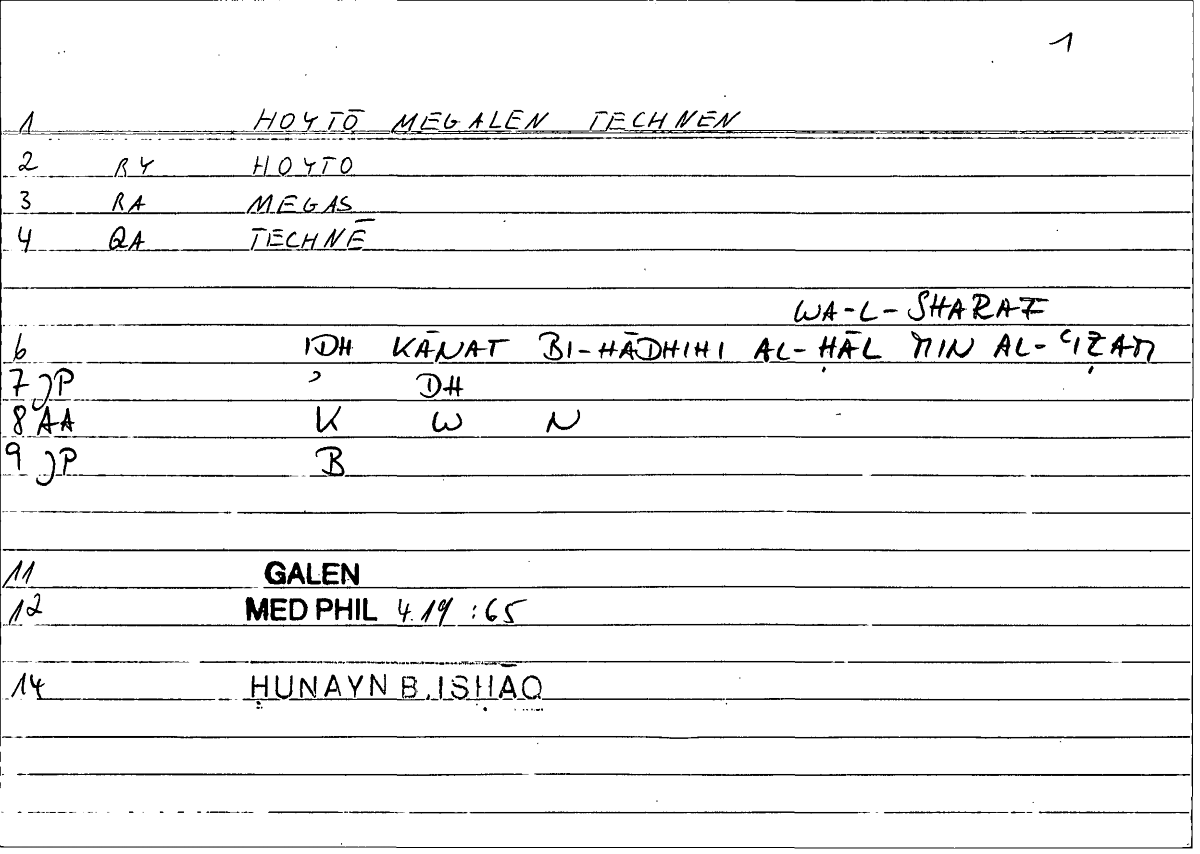 1
1 HOYTŌ MEGALĒN TECHNĒN
2 RY HOYTO
3 RA MEGAS
4 QA TECHNĒ
WA-L-SHARAF
6 IDH KĀNAT BI-HĀDHIHI AL-ḤĀL MIN AL-ʿIẒAM
7 JP ʾ DH
8 AA K W N
9 JP B
11 GALEN
12 MED PHIL 4.19 :65
14 ḤUNAYN B. ISḤĀQ